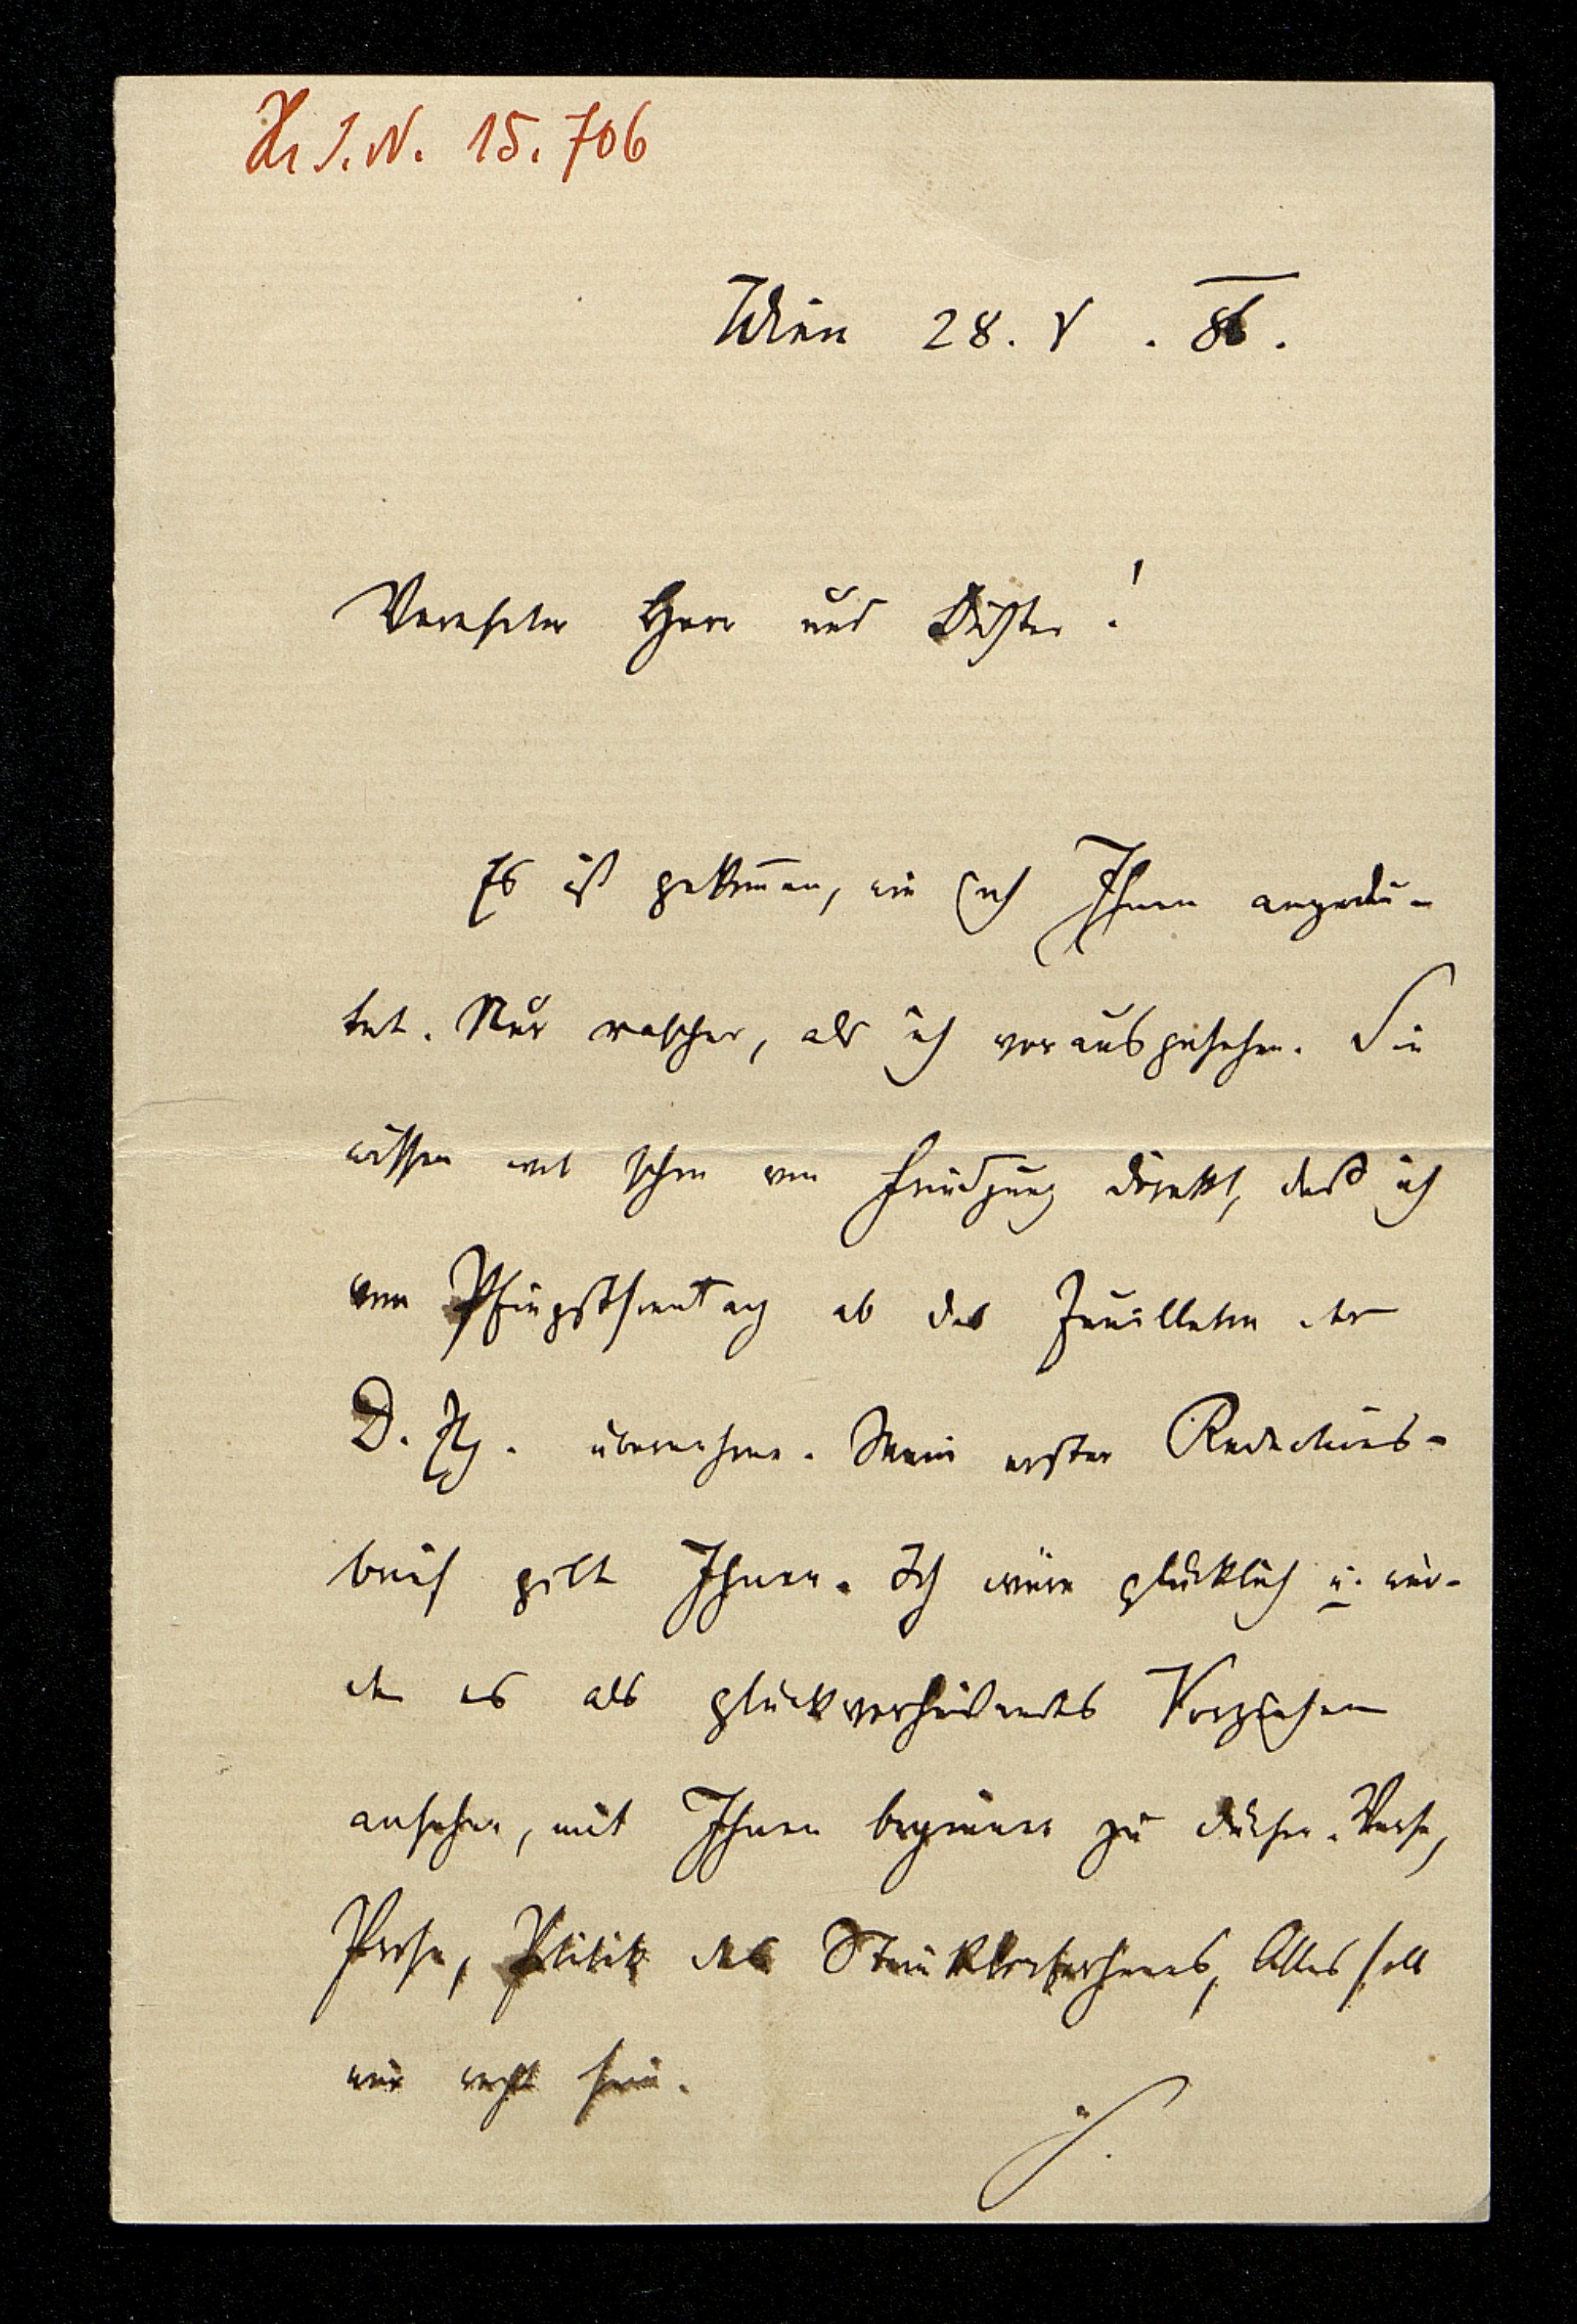 H. I. N. 15.706
Wien 28. V. 86.
Verehrter Herr und Dichter!
Es ist gekom̄en, wie ich Ihnen angedeu-
tet. Nur rascher, als ich vorausgesehen. Sie
wissen wol schon von Friedjung direkt, daß ich
vom Pfingstsonntag ab das Feuilleton der
D. Ztg. übernehme. Mein erster Redactions-
brief gilt Ihnen. Ich wäre glücklich u. wür-
de es als glückverheißendes Vorzeichen
ansehen, mit Ihnen beginnen zu dürfen. Verse,
Prosa, Politik des Steinklopferhanns, Alles soll
mir recht sein.